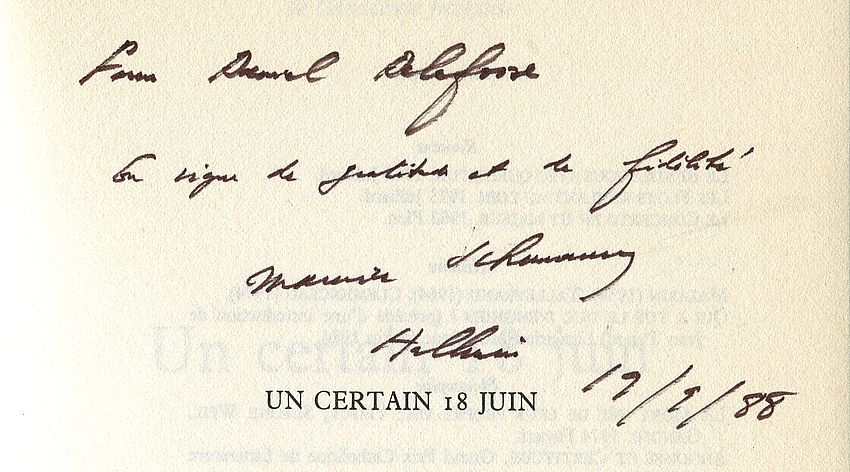 Pour Daniel Delefosse
En signe de gratitude et de fidélité
Maurice Schumann
Halluin
19/9/88
UN CERTAIN 18 JUIN